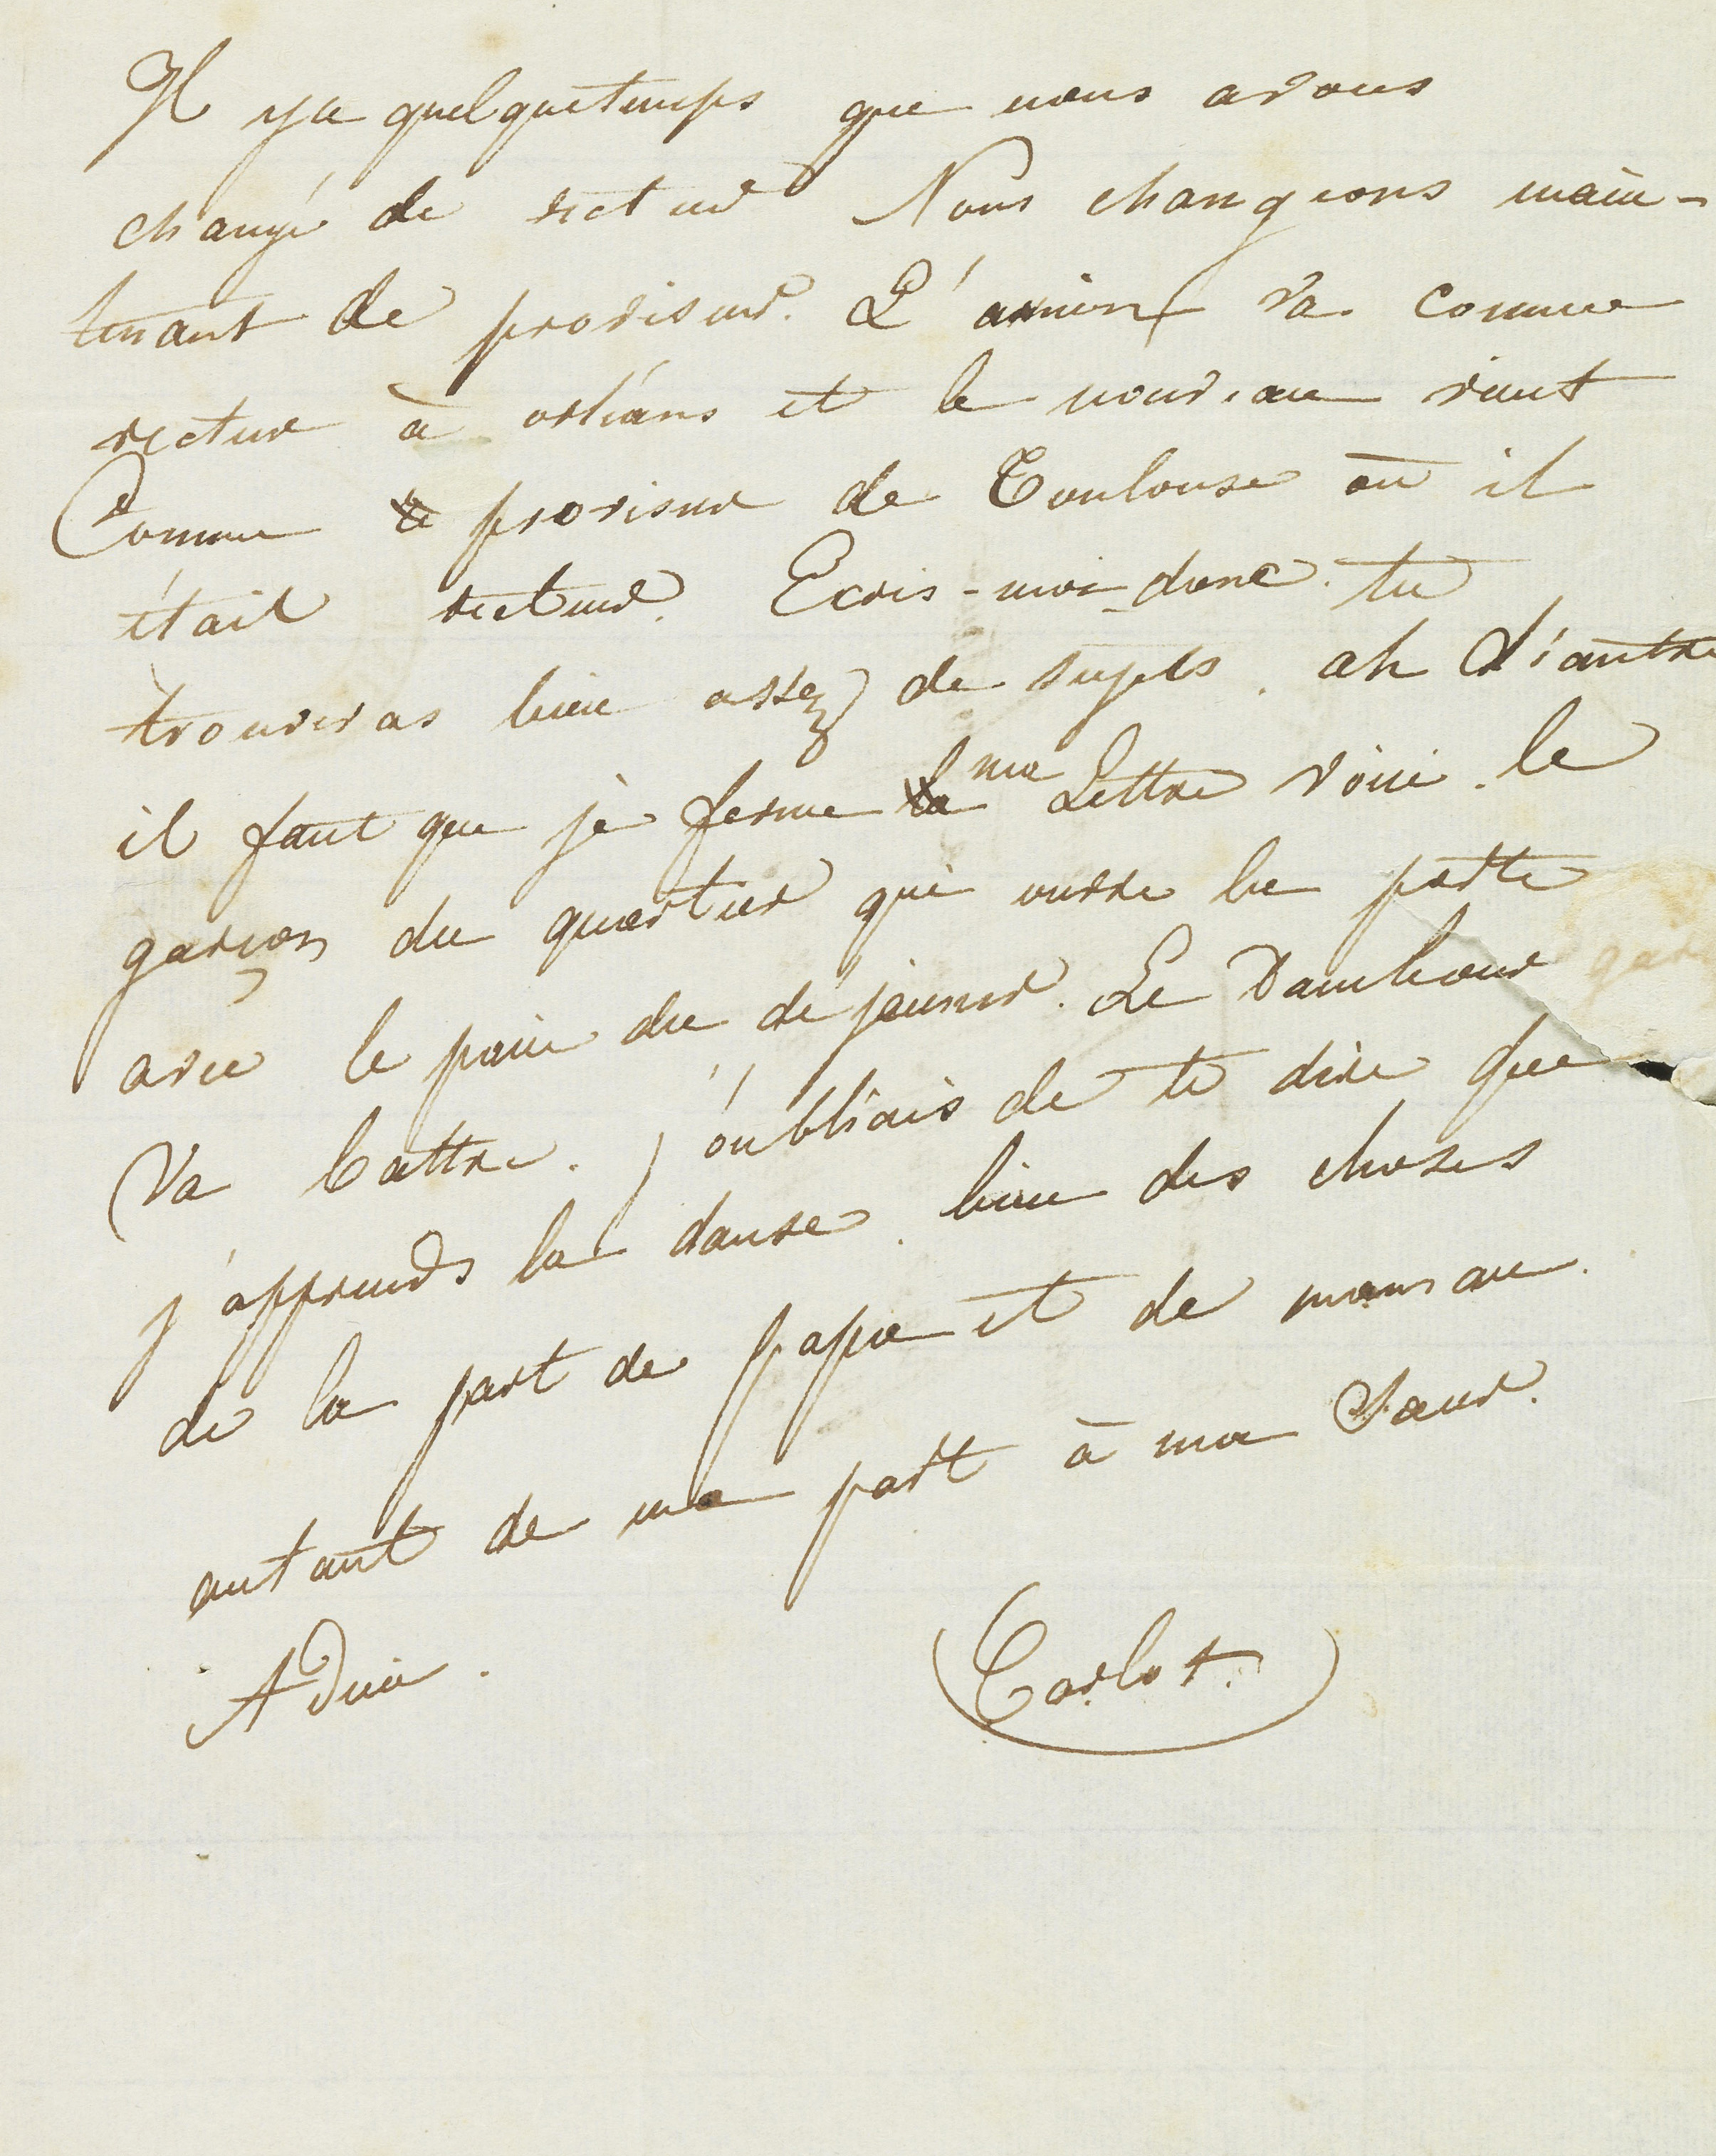 Il ya quelquetemps que nous avons
changé de recteur Nous changeons main-
tenant de proviseur. L'ancien va comme
recteur à orléans et le nouveau vient
Comme proviseur de Toulouse où il
était recteur. Ecris-moi donc. tu
trouveras bien assez de sujets. ah
il faut que je ferme ma Lettre voici le
garçon du quartier qui ouvre la porte
avec le pain du déjeuner. Le Tambour
Va battre. j'oubliais de te dire que
j'apprends la danse. bien des choses
de la part de papa et de maman.
autant de ma part à ma Soeur.
Adieu.
Carlot.